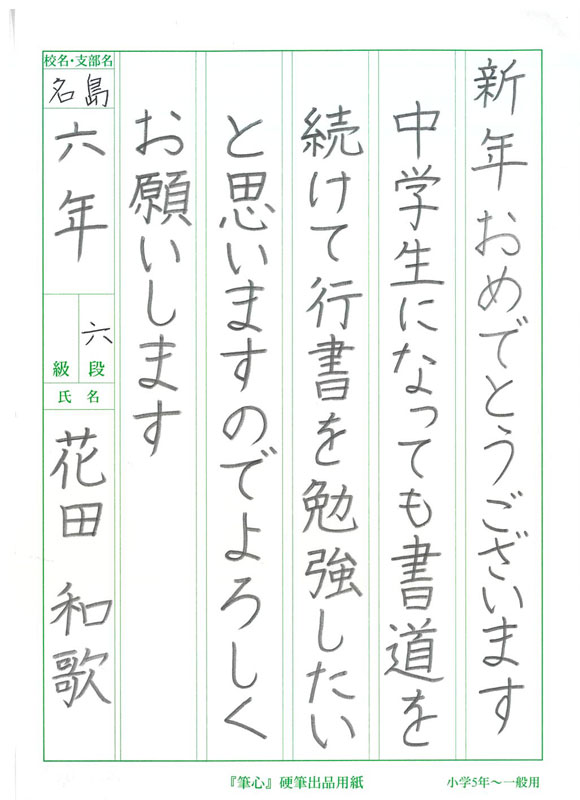 新年おめでとうございます
中学生になっても書道を
続けて行書を勉強したい
と思いますのでよろしく
お願いします
校名・支部名
名島
六年
六段
級
氏名
花田 和歌
『筆心』硬筆出品用紙
小学5年〜一般用